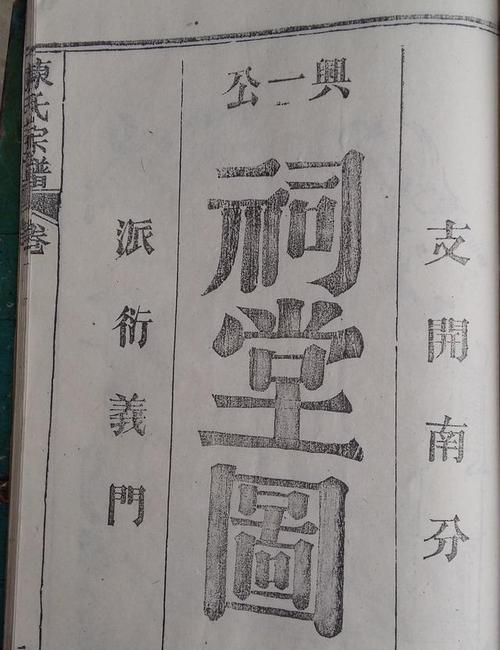 支開南分
興一公
祠堂圖
派衍義門
陳氏宗譜
卷